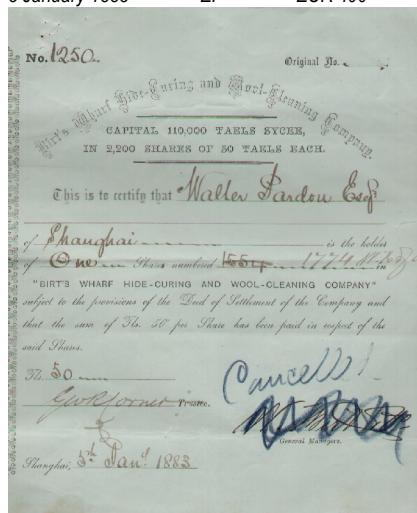 No. 1250.
Original No.
Birt's Wharf Hide-Curing and Wool-Cleaning Company.
CAPITAL 110,000 TAELS SYCEE,
IN 2,200 SHARES OF 50 TAELS EACH.
This is to certify that Walter Pardon Esqr
of Shanghai is the holder
of One Share numbered 1554 1774 in
"BIRT'S WHARF HIDE-CURING AND WOOL-CLEANING COMPANY"
subject to the provisions of the Deed of Settlement of the Company and
that the sum of Tls. 50 per Share has been paid in respect of the
said Shares.
Tls. 50
Geo R Corner Trustee.
Cancelled
General Managers.
Shanghai, 5th Jany 1883